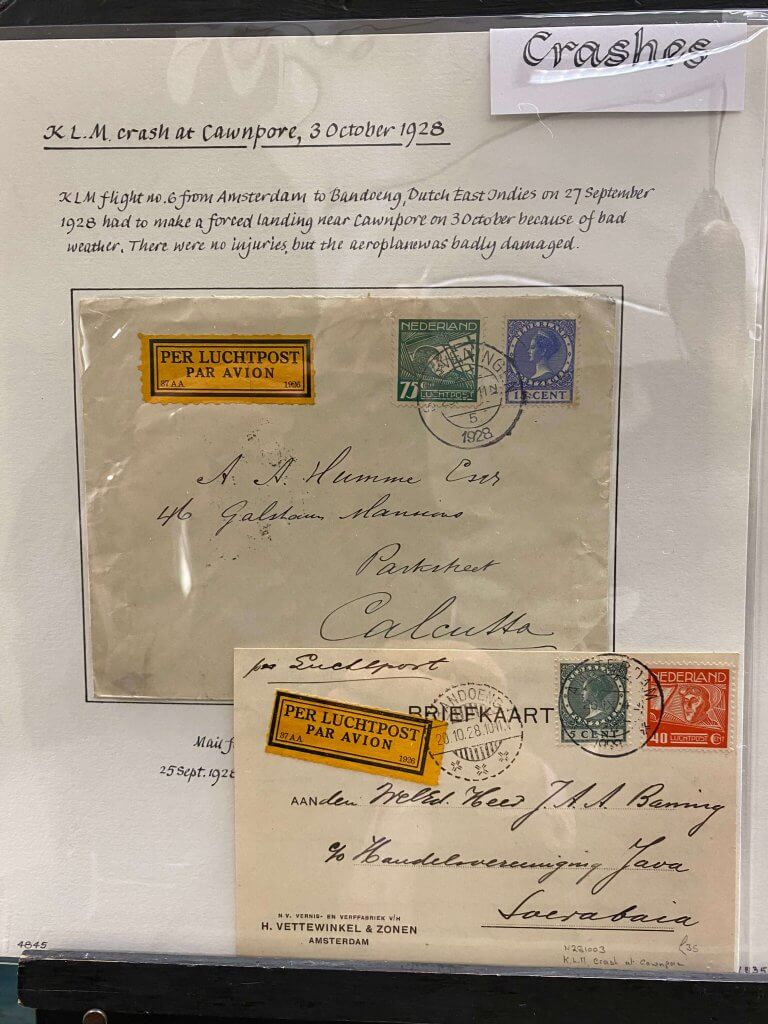 Crashes
K L.M. crash at Cawnpore, 3 October 1928
KLM flight no.6 from Amsterdam to Bandoeng, Dutch East Indies on 27 September
1928 had to make a forced landing near Cawnpore on 3 October because of bad
weather. There were no injuries, but the aeroplane was badly damaged.
PER LUCHTPOST
PAR AVION
37 A.A. 1926
NEDERLAND
75 CT
LUCHTPOST
NEDERLAND
15 CENT
5
1928
A. A. Humme Esqr
46 Galstaun Mansions
Parkstreet
Calcutta
Mail
25 Sept. 1928
per Luchtpost
PER LUCHTPOST
PAR AVION
37 A.A. 1926
BANDOENG
20.10.28.10
BRIEFKAART
5 CENT
NEDERLAND
40 LUCHTPOST CENT
AAN den WelEd. Heer J. A. A. Baning
c/o Handelsvereeniging Java
Soerabaia
N.V. VERNIS- EN VERFFABRIEK V/H
H. VETTEWINKEL & ZONEN
AMSTERDAM
N281003
£35
K.L.M. Crash at Cawnpore
4845
1835